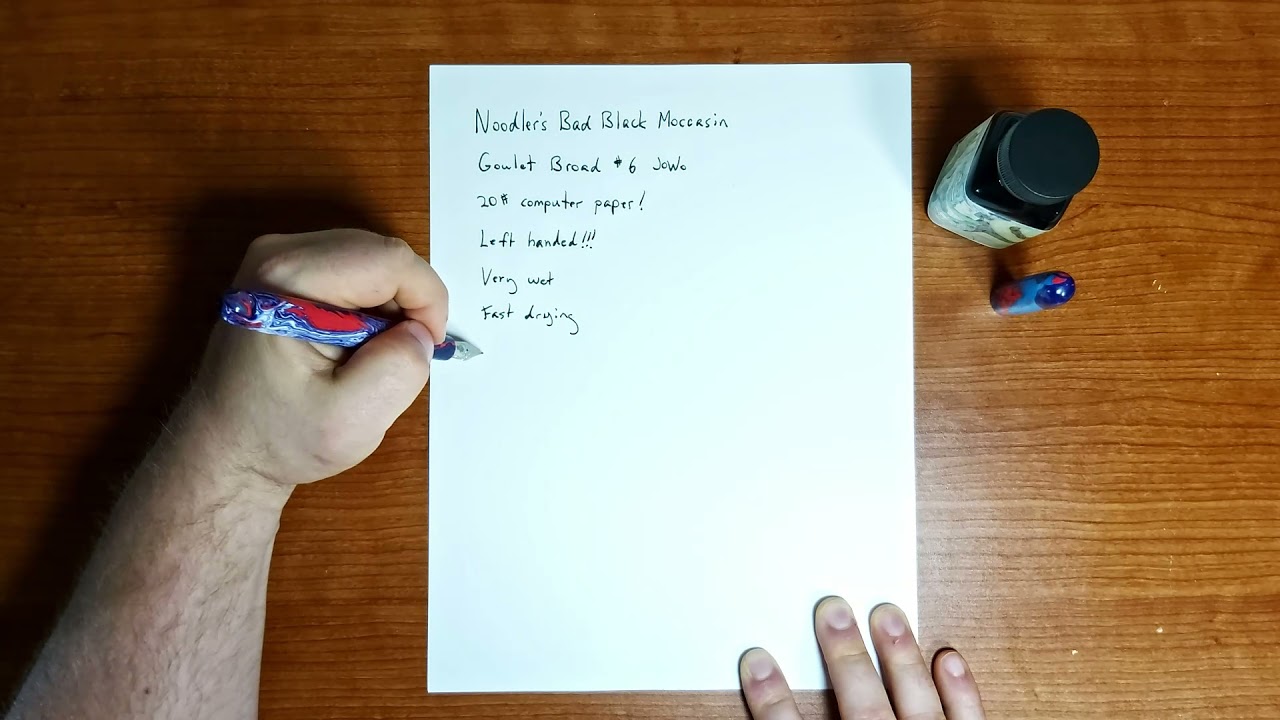 Noodler's Bad Black Moccasin
Goulet Broad #6 JoWo
20# computer paper!
Left handed!!!
Very wet
Fast drying